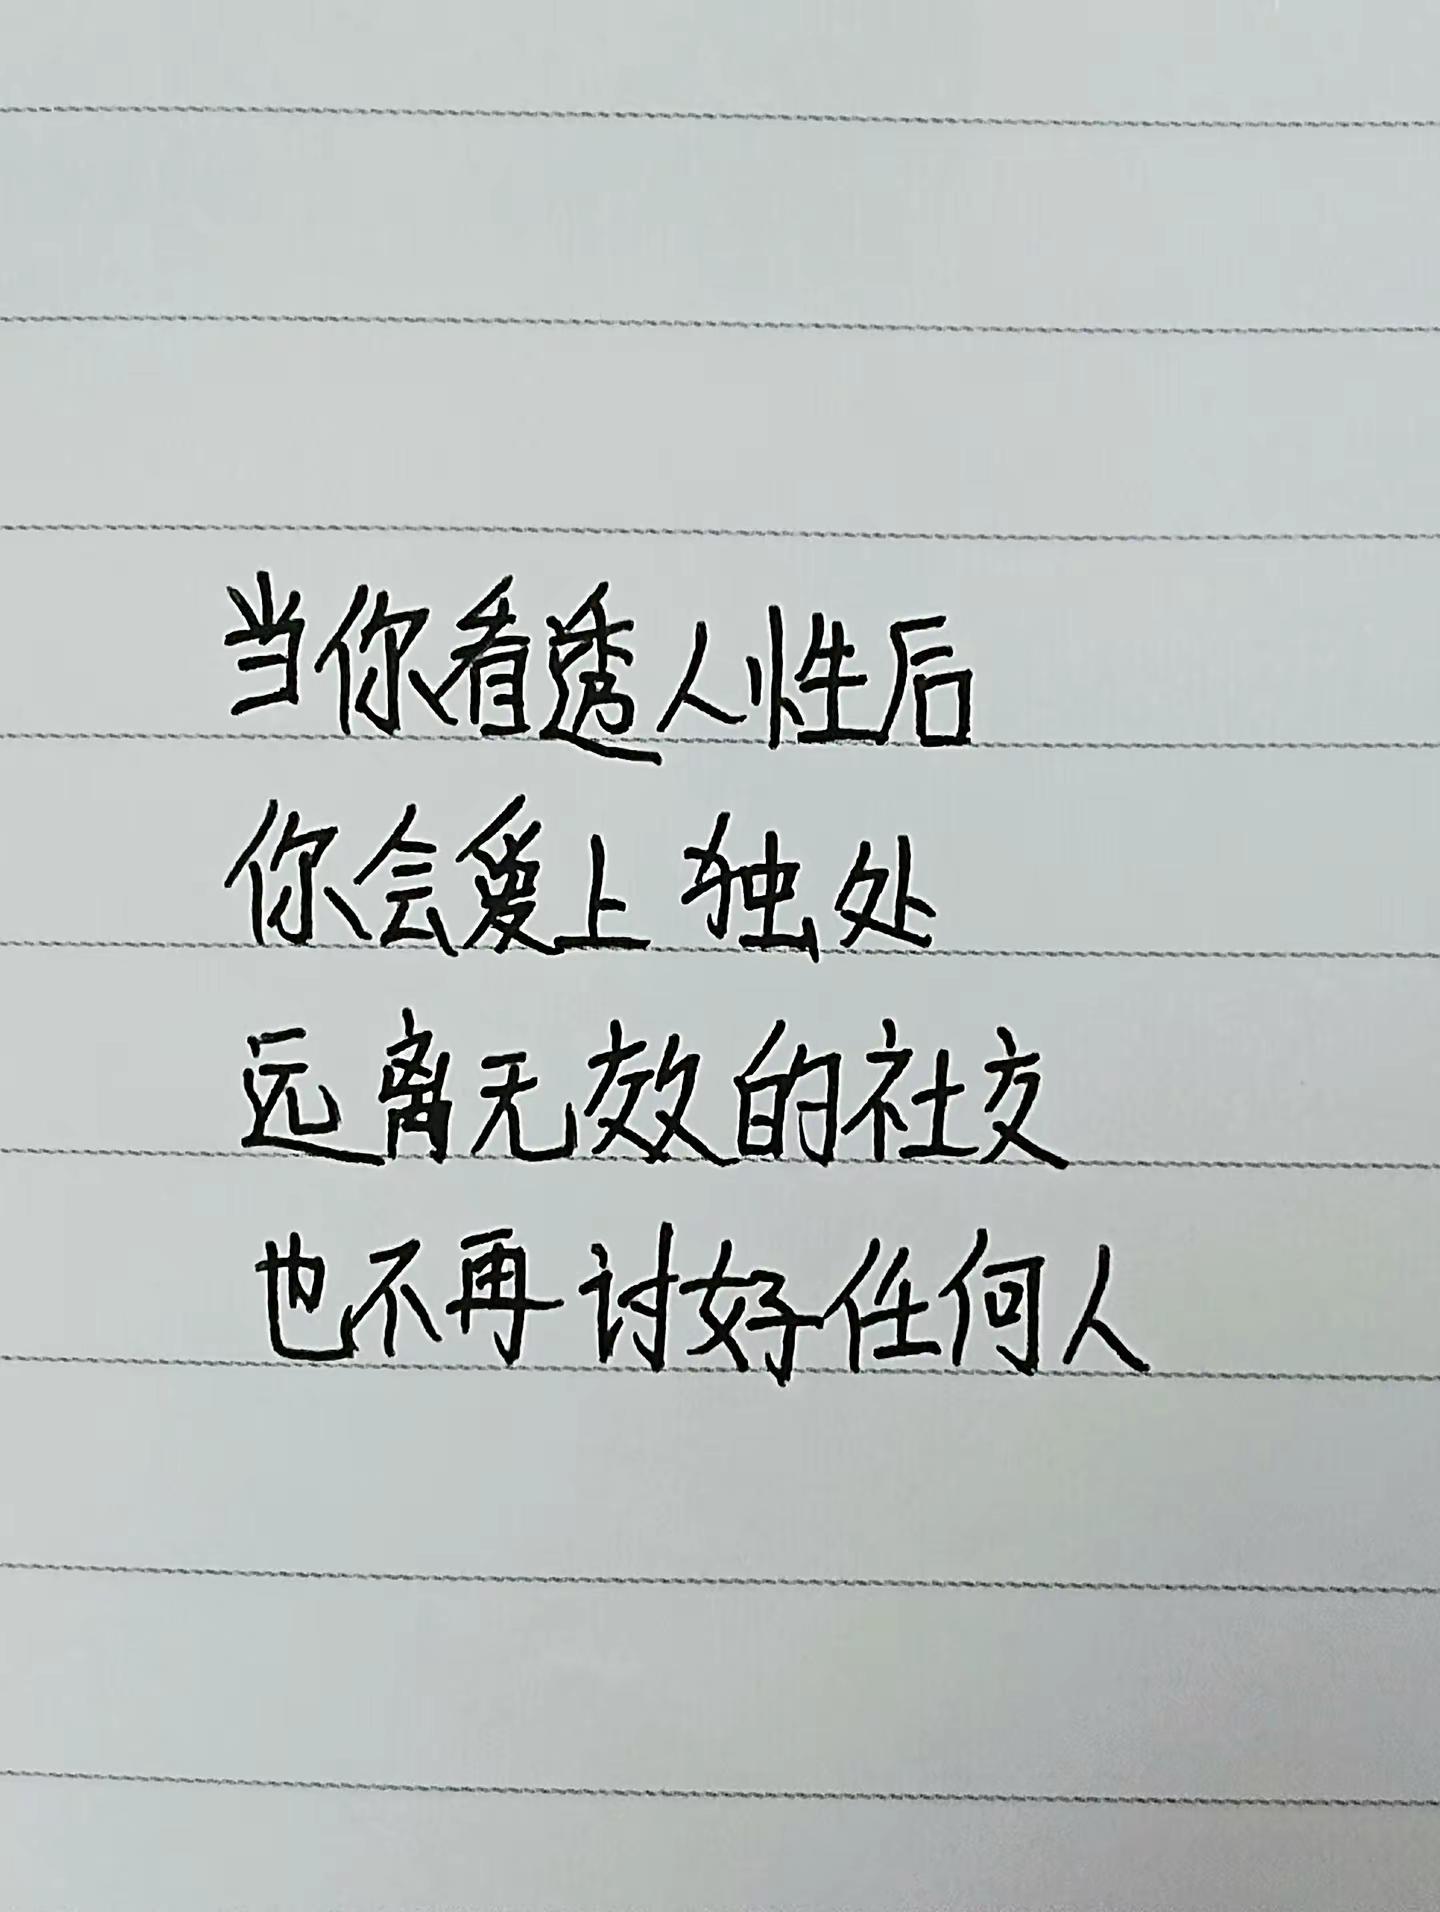 当你看透人性后
你会爱上独处
远离无效的社交
也不再讨好任何人